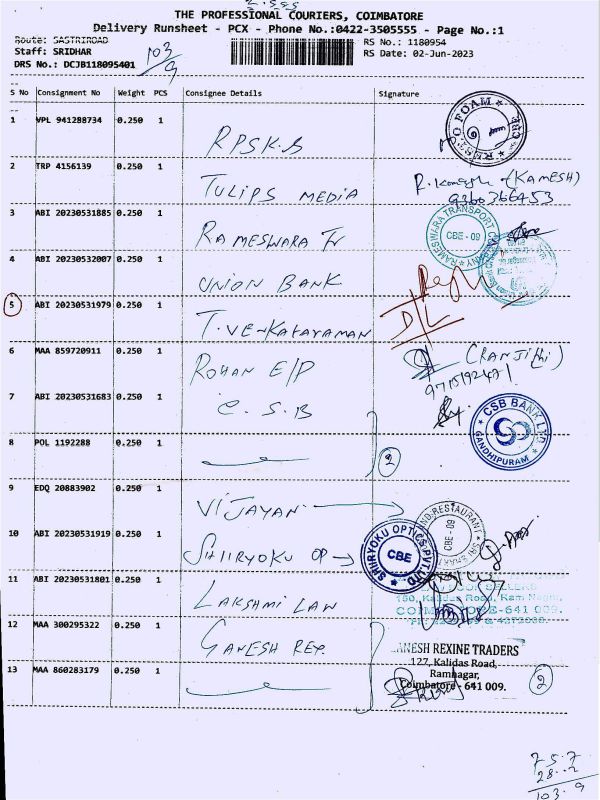 THE PROFESSIONAL COURIERS, COIMBATORE
Delivery Runsheet - PCX - Phone No.:0422-3505555 - Page No.:1
Route: SASTRIROAD
RS No.: 1180954
Staff: SRIDHAR
103/9
RS Date: 02-Jun-2023
DRS No.: DCJB118095401
S No Consignment No Weight PCS Consignee Details Signature
1 VPL 941288734 0.250 1 RPSK.B
2 TRP 4156139 0.250 1 TULIPS MEDIA (KAMESH)
9360366453
3 ABI 20230531885 0.250 1 RAMESWARA Tr RAMESWARA TRANSPORT CBE - 09
4 ABI 20230532007 0.250 1 UNION BANK
5 ABI 20230531979 0.250 1 T. VENKATARAMAN D/L
6 MAA 859720911 0.250 1 ROHAN E/P
7 ABI 20230531683 0.250 1 C.S.B CSB BANK LTD GANDHIPURAM
8 POL 1192288 0.250 1 2
9 EDQ 20883902 0.250 1 VIJAYAN CBE - 09
10 ABI 20230531919 0.250 1 SHIRYOKU OP SHIRYOKU OPTICS PVT LTD CBE
11 ABI 20230531801 0.250 1 LAKSHMI LAW SELLERS
Kalidas Road, Ram Nagar,
COIMBATORE-641 009.
12 MAA 300295322 0.250 1 GANESH REX. GANESH REXINE TRADERS
127, Kalidas Road,
Ramnagar,
13 MAA 860283179 0.250 1 Coimbatore - 641 009. 2
75.7
28.2
103.9